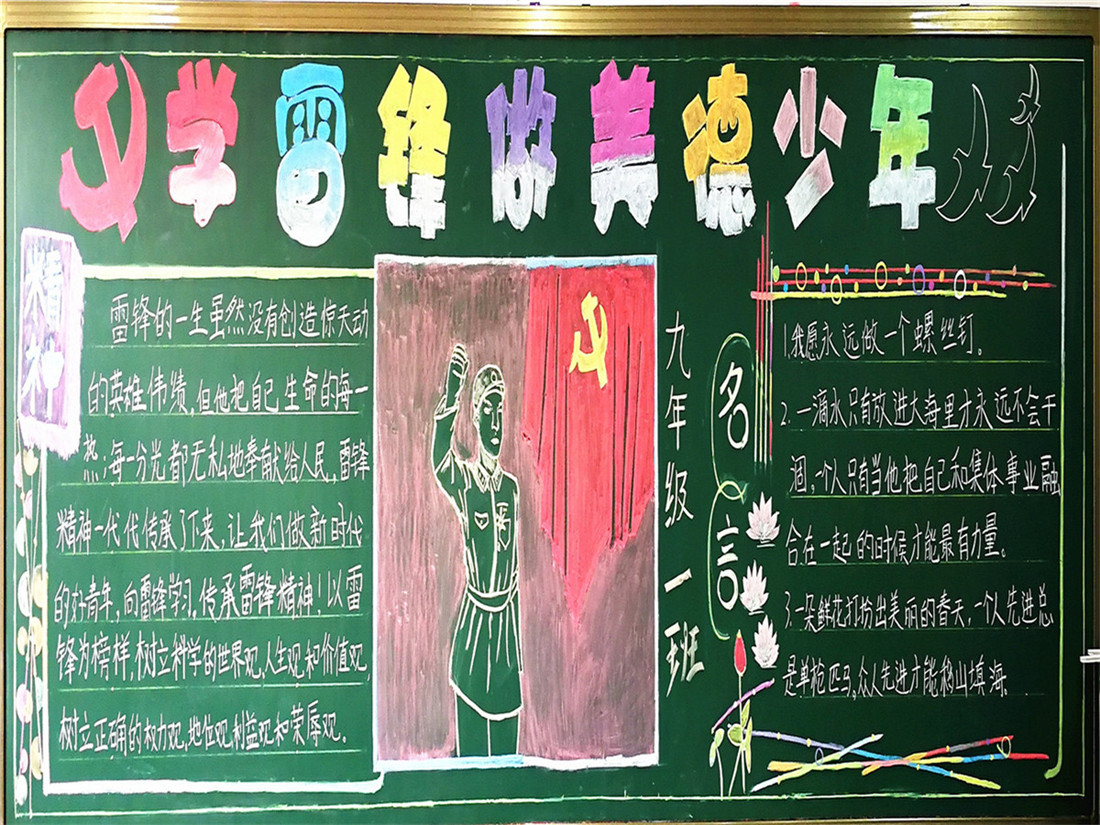 学雷锋做美德少年
精神
雷锋的一生虽然没有创造惊天动
的英雄伟绩,但他把自己生命的每一
热;每一分光都无私地奉献给人民,雷锋
精神一代代传承了下来,让我们做新时代
的好青年,向雷锋学习,传承雷锋精神!以雷
锋为榜样,树立科学的世界观,人生观和价值观,
树立正确的权力观,地位观,利益观和荣辱观。
九年级一班
名言
1.我愿永远做一个螺丝钉。
2.一滴水只有放进大海里才永远不会干
涸,一个人只有当他把自己和集体事业融
合在一起的时候才能最有力量。
3.一朵鲜花打扮不出美丽的春天,一个人先进总
是单枪匹马,众人先进才能移山填海.